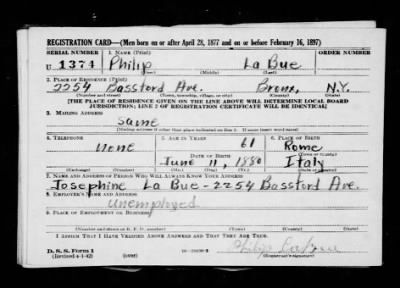 REGISTRATION CARD—(Men born on or after April 28, 1877 and on or before February 16, 1897)
SERIAL NUMBER 1. NAME (Print) ORDER NUMBER
U 1374 Philip La Bue
(First) (Middle) (Last)
2. PLACE OF RESIDENCE (Print)
2254 Bassford Ave. Bronx, N.Y.
(Number and street) (Town, township, village, or city) (County) (State)
[THE PLACE OF RESIDENCE GIVEN ON THE LINE ABOVE WILL DETERMINE LOCAL BOARD
JURISDICTION; LINE 2 OF REGISTRATION CERTIFICATE WILL BE IDENTICAL]
3. MAILING ADDRESS
Same
[Mailing address if other than place indicated on line 2. If same insert word same]
4. TELEPHONE 5. AGE IN YEARS 6. PLACE OF BIRTH
None 61 Rome
DATE OF BIRTH (Town or county)
June 11, 1880 Italy
(Exchange) (Number) (Mo.) (Day) (Yr.) (State or country)
7. NAME AND ADDRESS OF PERSON WHO WILL ALWAYS KNOW YOUR ADDRESS
Josephine La Bue - 2254 Bassford Ave.
8. EMPLOYER'S NAME AND ADDRESS
Unemployed
9. PLACE OF EMPLOYMENT OR BUSINESS
(Number and street or R. F. D. number) (Town) (County) (State)
I AFFIRM THAT I HAVE VERIFIED ABOVE ANSWERS AND THAT THEY ARE TRUE.
D. S. S. Form 1 Philip La Bue
(Revised 4-1-42) (over) (Registrant's signature)